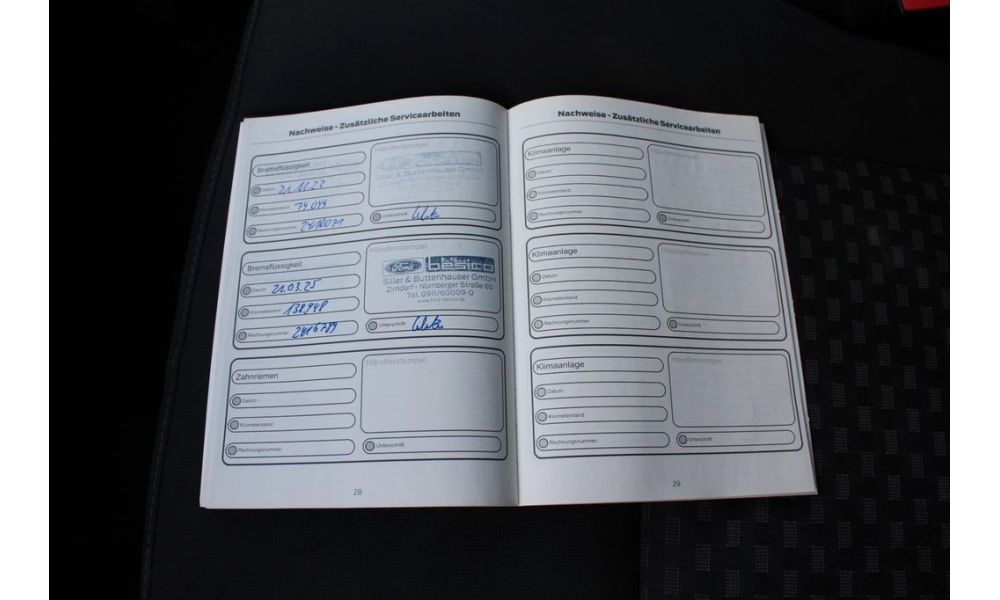 Nachweise - Zusätzliche Servicearbeiten
Bremsflüssigkeit
Händlerstempel
Siller & Buttenhauser GmbH
Datum: 21.11.22
Kilometerstand: 79.099
Rechnungsnummer:
Unterschrift:
Bremsflüssigkeit
Händlerstempel
Ford besico
Siller & Buttenhauser GmbH
Zirndorf - Nürnberger Straße 65
Tel. 0911/60009-0
Datum: 21.03.25
Kilometerstand: 138.948
Rechnungsnummer: 2416789
Unterschrift:
Zahnriemen
Händlerstempel
Datum:
Kilometerstand:
Rechnungsnummer:
Unterschrift:
28
Nachweise - Zusätzliche Servicearbeiten
Klimaanlage
Händlerstempel
Datum:
Kilometerstand:
Rechnungsnummer:
Unterschrift:
Klimaanlage
Händlerstempel
Datum:
Kilometerstand:
Rechnungsnummer:
Unterschrift:
Klimaanlage
Händlerstempel
Datum:
Kilometerstand:
Rechnungsnummer:
Unterschrift:
29